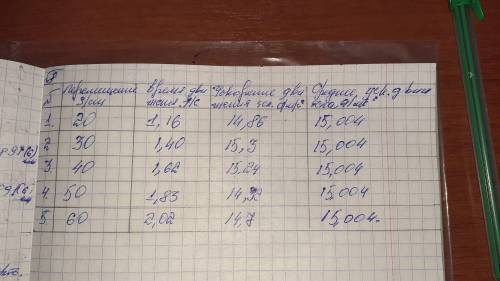 № Перемещение S/см Время дви жения, t/с Ускорение дви жения
1. 20 1,16 14,86 15,004
2 30 1,40 15,3 15,004
3. 40 1,62 15,24 15,004
4. 50 1,83 15,004
5. 60 2,02 14,7 15,004.